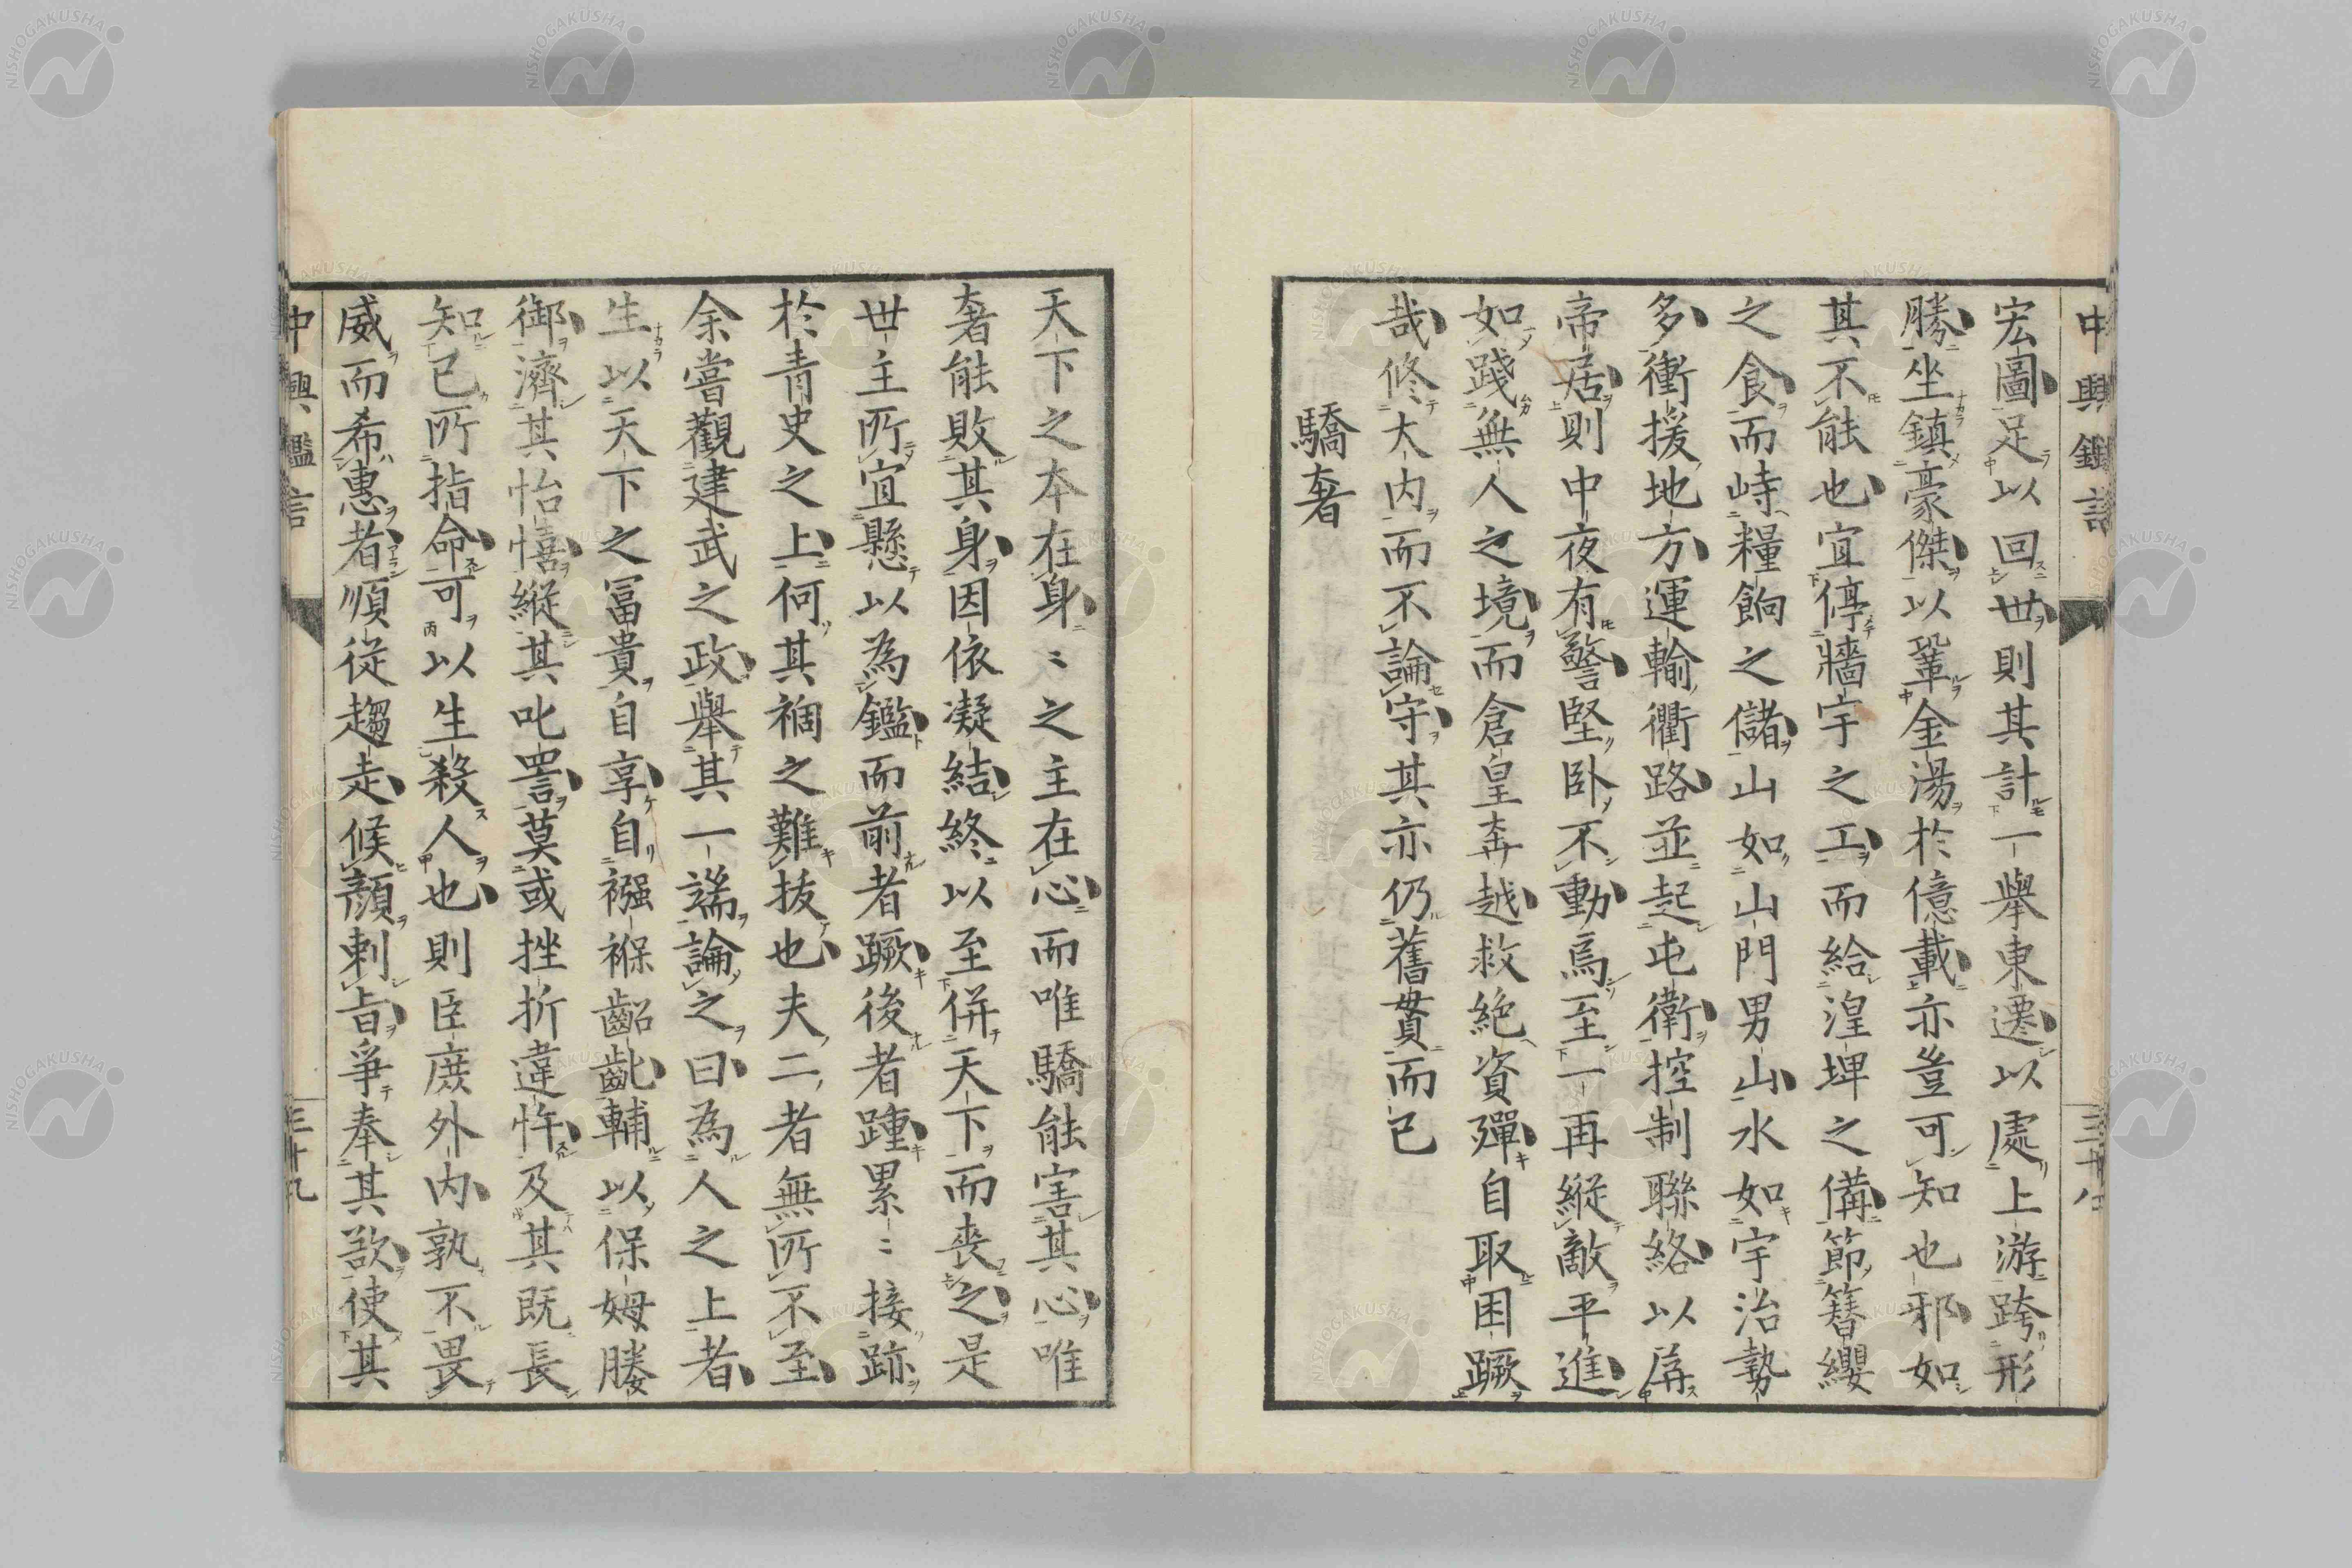 中興鑑言
三十八
宏圖足以回世則其計一舉東遷以處上游跨形
勝坐鎮豪傑以鞏金湯於億載亦豈可知也邪如
其不能也宜停牆宇之工而給湟埤之備節簪纓
之食而峙糧餉之儲山如山門男山水如宇治勢
多衝援地方運輸衢路並起屯衛控制聯絡以孱
帝居則中夜有警堅臥不動焉至一再縱敵平進
如踐無人之境而倉皇奔越救絶資殫自取困蹶
哉修大内而不論守其亦仍舊貫而已
驕奢
天下之本在身〻之主在心而唯驕能害其心唯
奢能敗其身因依凝結終以至併天下而喪之是
世主所宜懸以為鑑而前者蹶後者踵累〻接跡
於青史之上何其禍之難拔也夫二者無所不至
余嘗觀建武之政舉其一端論之曰為人之上者
生以天下之冨貴自享自襁褓齠齔輔以保姆媵
御濟其怡憘縱其叱詈莫或挫折違忤及其既長
知已所指命可以生殺人也則臣庶外内孰不畏
威而希惠者順從趨走候顔刺旨爭奉其欲使其
中興鑑言
三十九
NISHOGAKUSHA